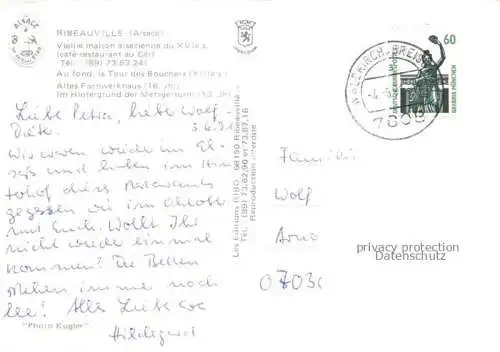 RIBEAUVILLE (Alsace)
Vieille maison alsacienne du XVIe s.
(café-restaurant du Cerf
Tél. (89) 73.63.241
Au fond, la Tour des Bouchers (XIIIe s.)
Altes Fachwerkhaus (16. Jh)
Im Hintergrund der Metzgerturm (13. Jh)
Liebe Petra, lieber Wolf,
Wir waren wieder im El-
saß und haben im Hin-
terhof dieses Restaurants
gegessen wie im Oktober
mit Euch. Wollt Ihr
nicht wieder einmal
kommen? Die Betten
stehen immer noch
leer! Alles Liebe
Hildegard
"Photo Kugler"
Les Editions RIBO, 68150 Ribeauvillé
Tél. (89) 73.62.90 et 73.67.16
Reproduction interdite
WALDKIRCH, BREISG
60
BAVARIA MÜNCHEN
Familie
Wolf
Arno
privacy protection
Datenschutz